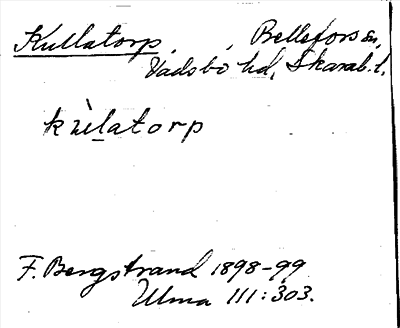 Kullatorp, , Bellefors sn,
Vadsbo hd, Skarab. l.
kùlatorp
F. Bergstrand 1898-99
Ulma 111:303.